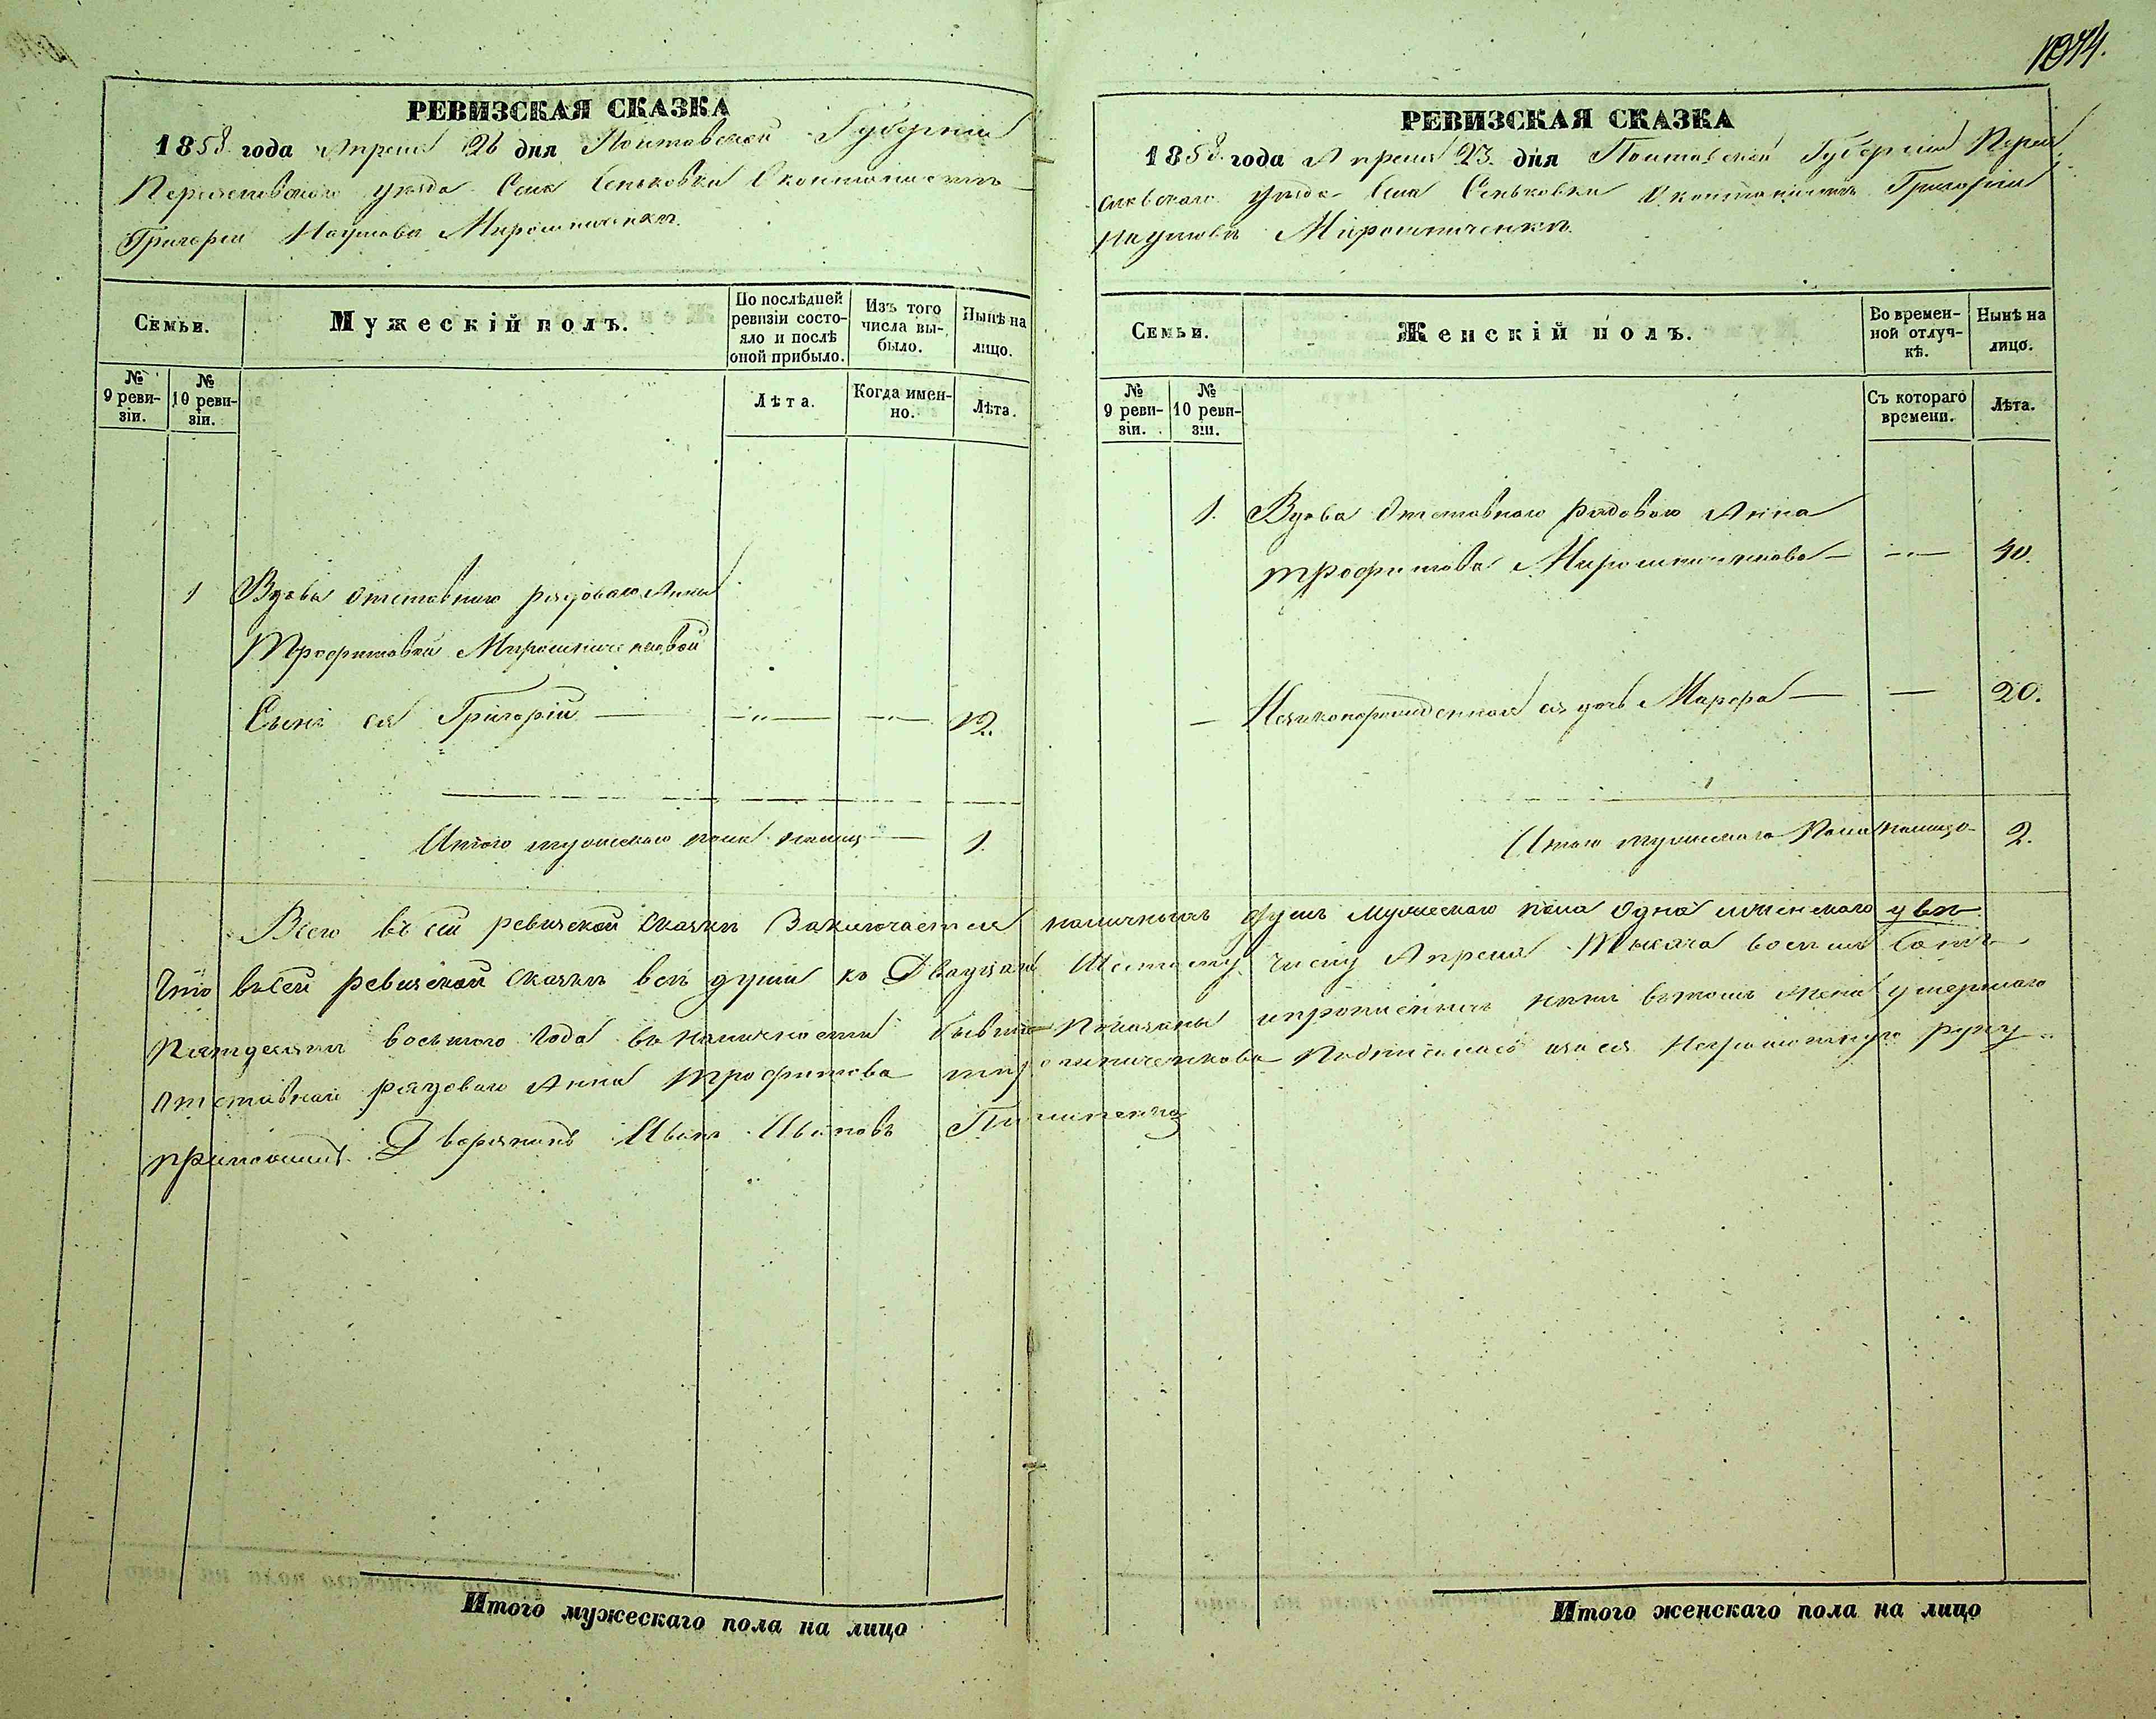 1044.
РЕВИЗСКАЯ СКАЗКА
1858 года Апреля 26 дня Полтавской Губернии
Переяславского уезда Села Сеньковки О кантонисте
Григории Наумове Мирошниченке.
Семьи.
Мужескій полъ.
По послѣдней ревизіи состояло и послѣ оной прибыло.
Изъ того числа выбыло.
Нынѣ на лицо.
№ 9 ревизіи.
№ 10 ревизіи.
Лѣта.
Когда именно.
Лѣта.
1 Вдовы отставного рядового Анны
Трофимовой Мирошниченковой
Сынъ ея Григорій — —„— —„— 12.
Итого мужескаго пола налицо — 1.
РЕВИЗСКАЯ СКАЗКА
1858 года Апреля 23 дня Полтавской Губернии Перея
славского уезда Села Сеньковки О кантонисте Григории
Наумове Мирошниченке.
Семьи.
Женскій полъ.
Во временной отлучкѣ.
Нынѣ на лицо.
№ 9 ревизіи.
№ 10 ревизіи.
Съ котораго времени.
Лѣта.
1. Вдова отставного рядового Анна
Трофимова Мирошниченкова — —„— 40.
— ея дочь Марфа — — 20.
Итого пола налицо 2.
Всего въ сей ревизской сказке заключается наличныхъ душъ мужескаго пола одна женскаго две
Что въ сей ревизской сказке все души къ Двадцать Шестому числу Апреля Тысяча восемь сотъ
Пятдесятъ восьмого года въ наличности бывшие показаны и прописныхъ нетъ въ томъ жена умершаго
отставного рядового Анна Трофимова Мирошниченкова
Дворянинъ Иванъ Ивановъ
Итого мужескаго пола на лицо
Итого женскаго пола на лицо